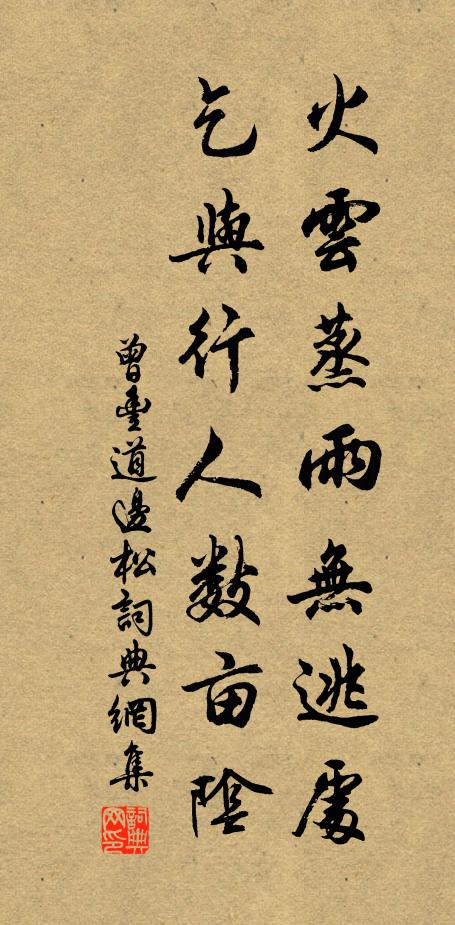 火雲蒸雨無逃處
乞與行人數亩陰
曾豊道邊松詞典網集
詞典网印